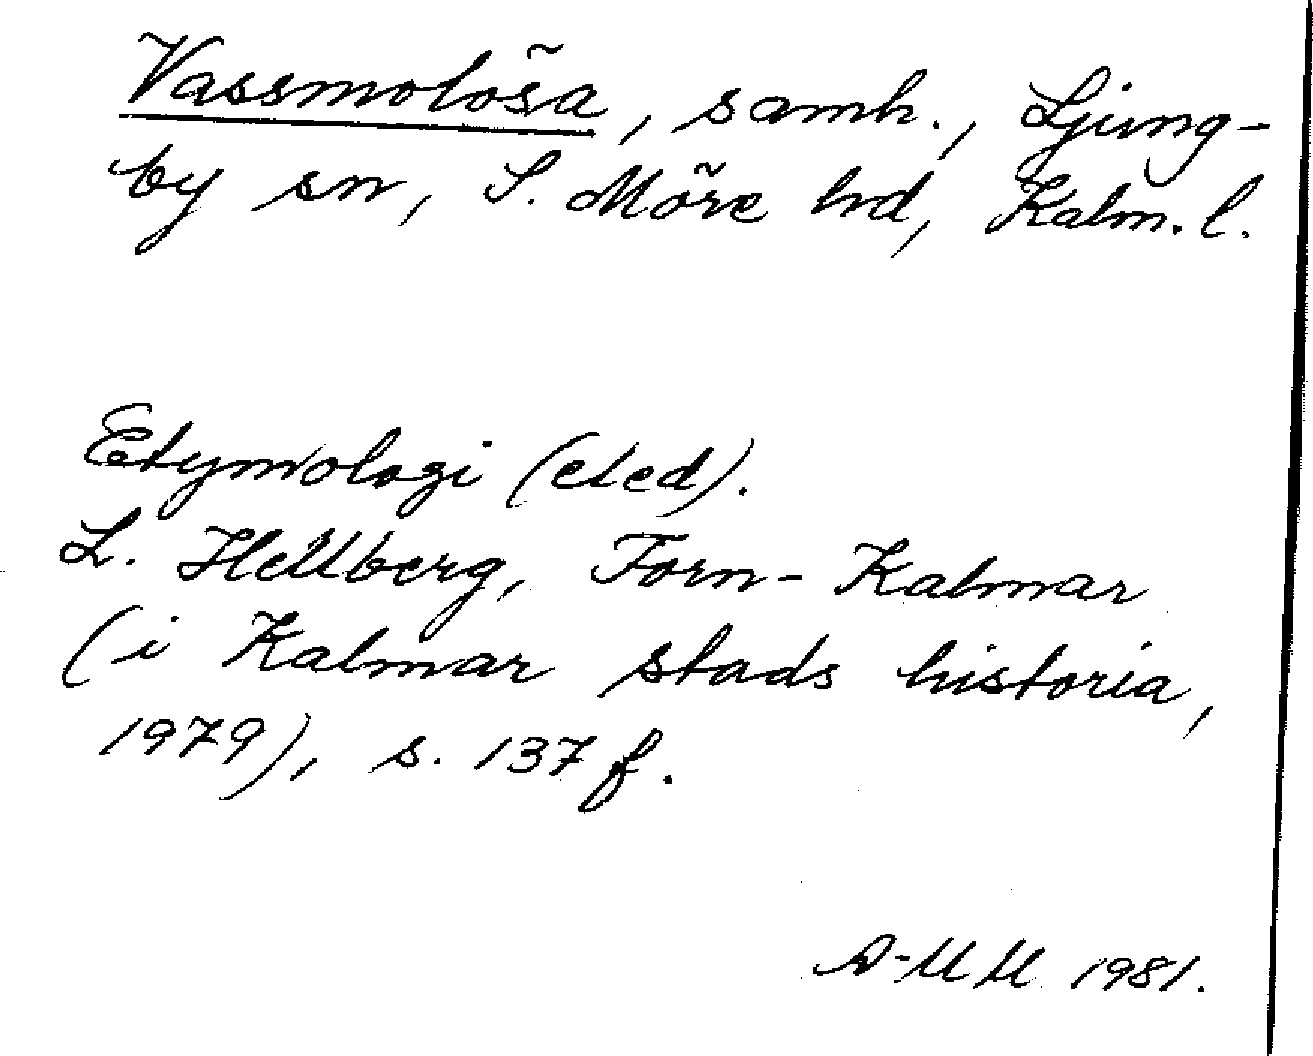 Vassmolösa, samh., Ljung-
by sn, S. Möre hd, Kalm. l.
Etymologi (eled).
L. Hellberg, Forn-Kalmar
(i Kalmar stads historia,
1979), s. 137 f.
A-MM 1981.